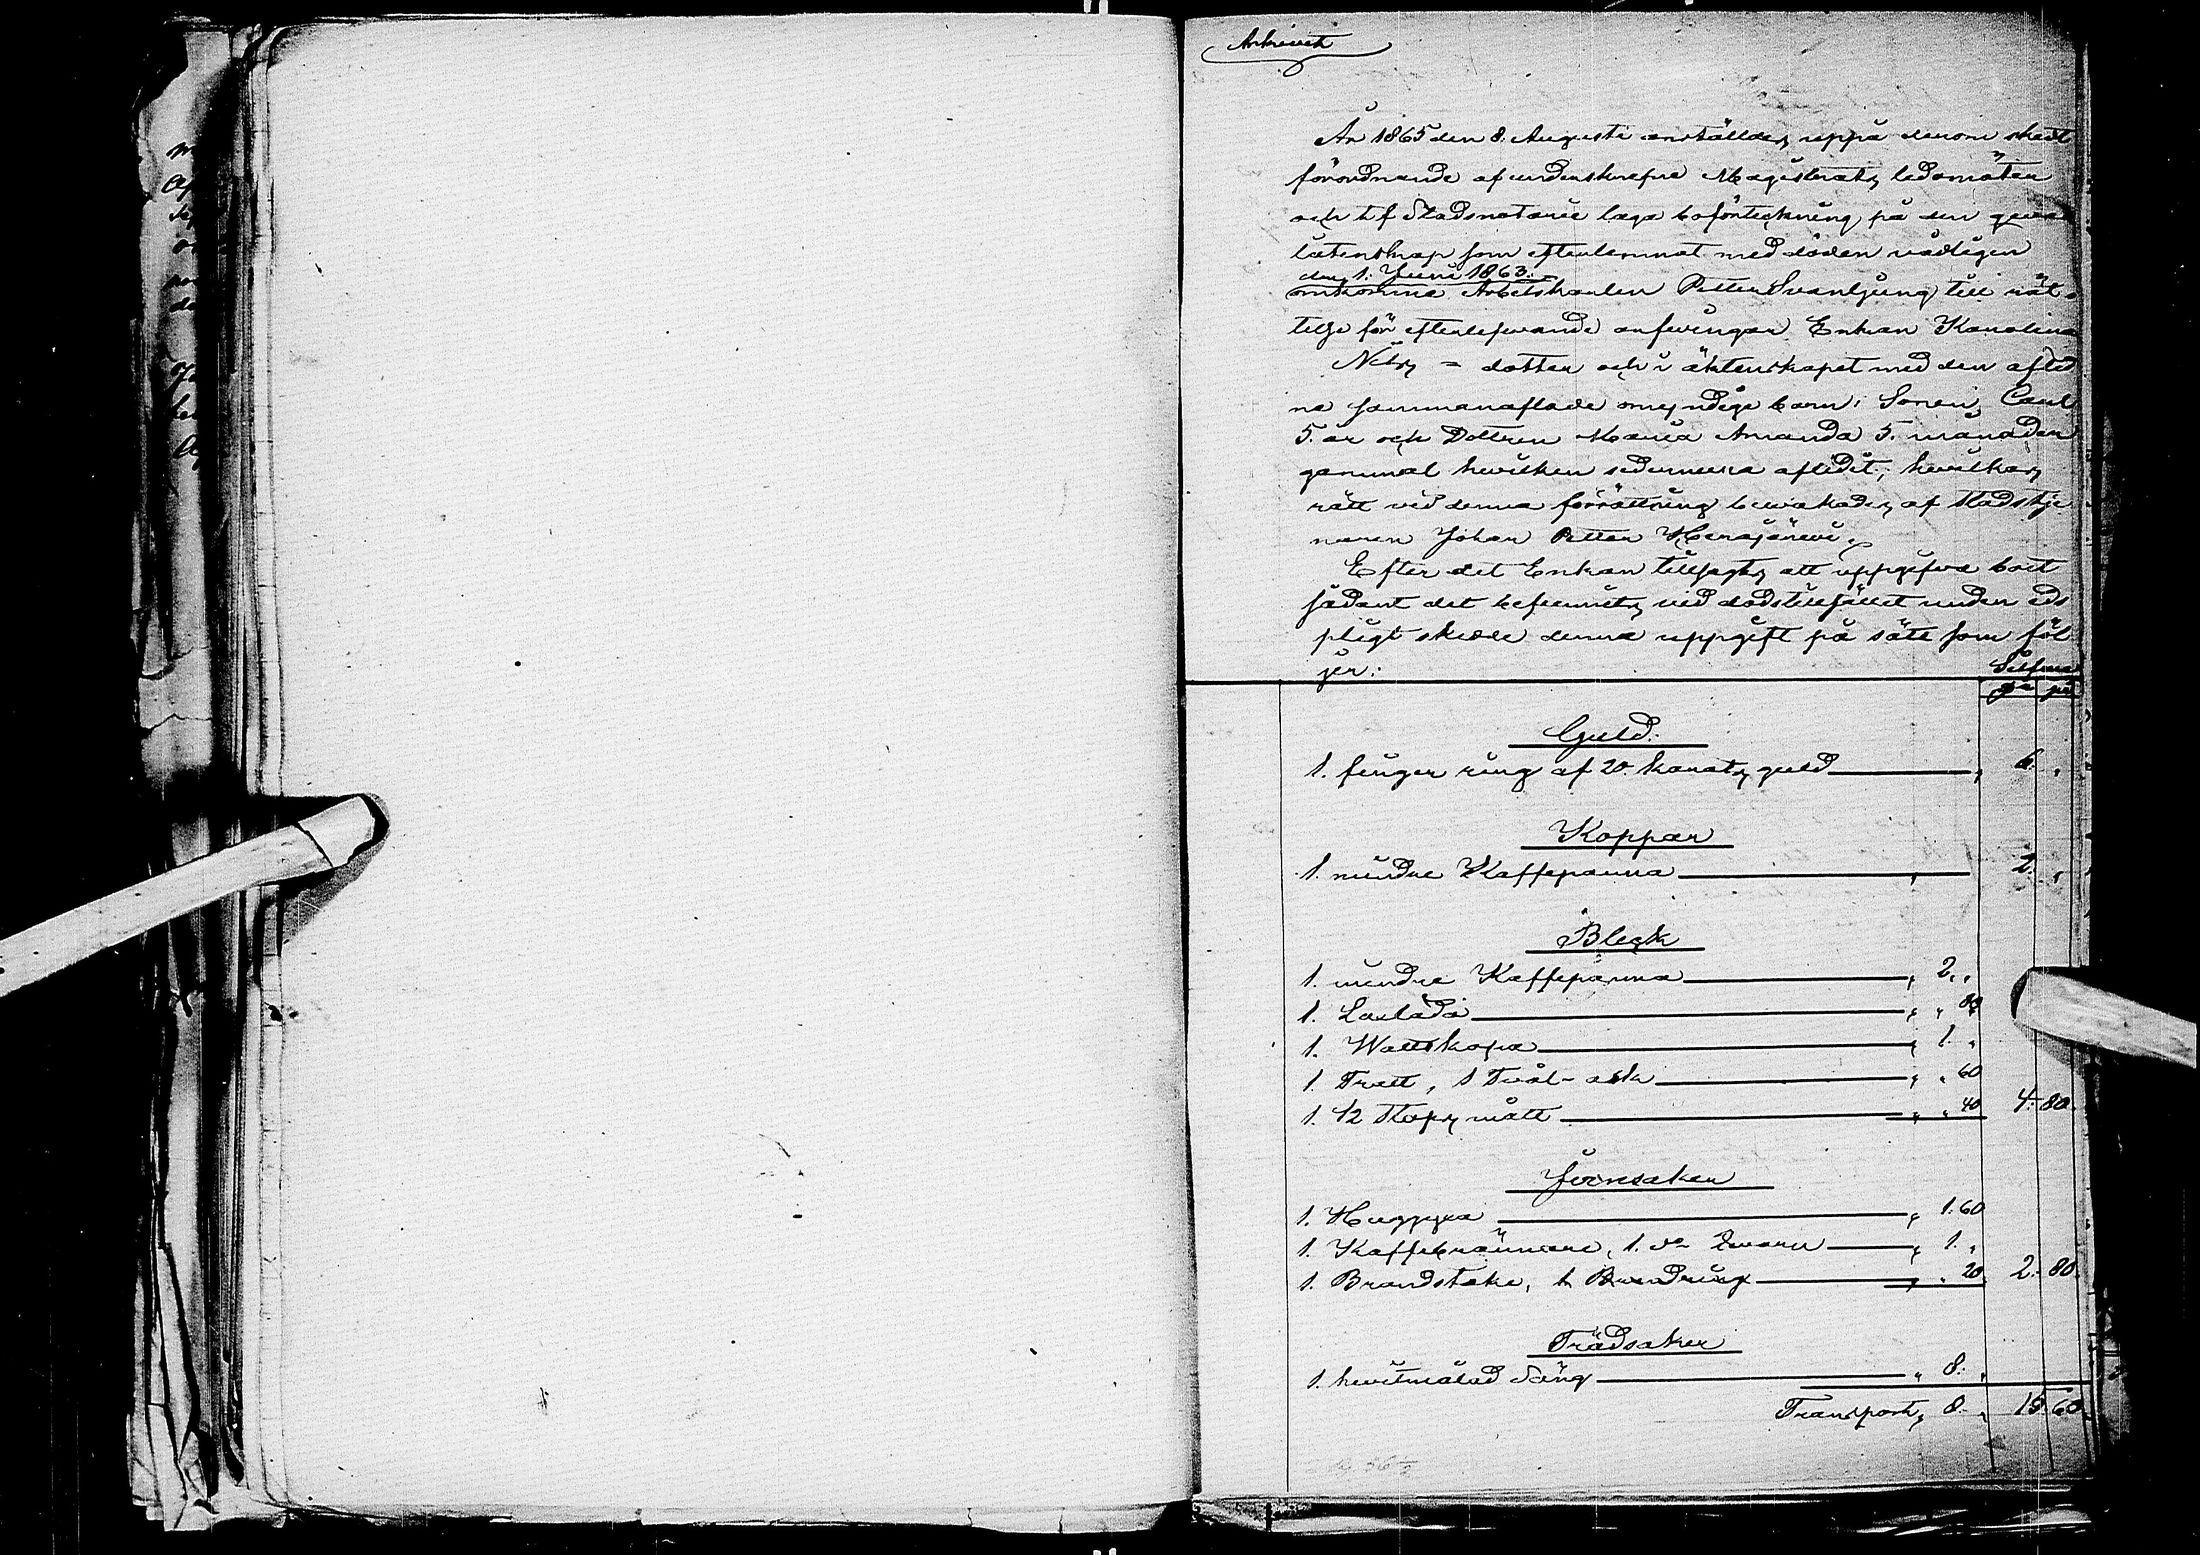 Arkivet
År 1865 den 8. Augusti anställdes uppå derom skedt
förordnande af underskrefne Magistrats ledamöter
och tf Stadsnotarie laga boförteckning på den qvar
låtenskap som efterlemnat med döden vådligen
den 1. Juni 1863.
omkomne Arbetskarlen Petter Svanljung till rät-
telse för efterlefvande arfvingar Enkan Karolina
Nils = dotter och i äktenskapet med den aflid
na sammanaflade omyndiga barn: Sonen, Carl
5. år och Dottren Maria Amanda 5. månader
gammal hvilken sedermera aflidit; hvilkas
rätt vid denna förrättning bevakades af stadstje
naren Johan Petter
Efter det Enkan tillsagts att uppgifva boet
sådant det befunnits vid dödstillfället under eds
pligt skedde denna uppgift på sätt som föl
jer:
Silfver
Guld:
1. finger ring af 20. karats guld " 6. "
Koppar
1. mindre Kaffepanna " 2. "
Bleck
1. mindre Kaffepanna " 2. "
1. " " 80
1. Wattskopa " 1. "
1. Tratt, 1 Tvål-ask " " 60
1. 1/2 Stops mått " " 40 4. 80.
Jernsaker
1. Huggyxa " 1. 60
1. Kaffebrännare, 1. do Qvarn " 1. "
1. Brandstake, 1. Brandring " " 20 2. 80.
Trädsaker
1. hvitmålad Säng " 8. "
Transport, 8. " 15. 60.